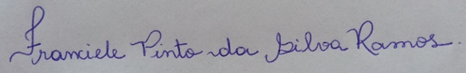 Franciele Pinto da Silva Ramos.